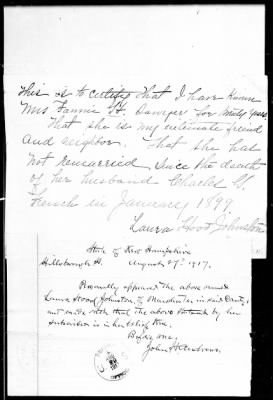 This is to certify that I have known
Mrs Fannie H. for many years
That she is my intimate friend
and neighbor. That she has
not remarried since the death
of her husband Charles G.
French in January 1899
Laura Hood Johnston
State of New Hampshire
Hillsborough ss. August 27th 1917.
Personally appeared the above named
Laura Hood Johnston, of Manchester in said County,
and made oath that the above statement by her
subscribed is in her belief true.
Before me,
John H. Andrews